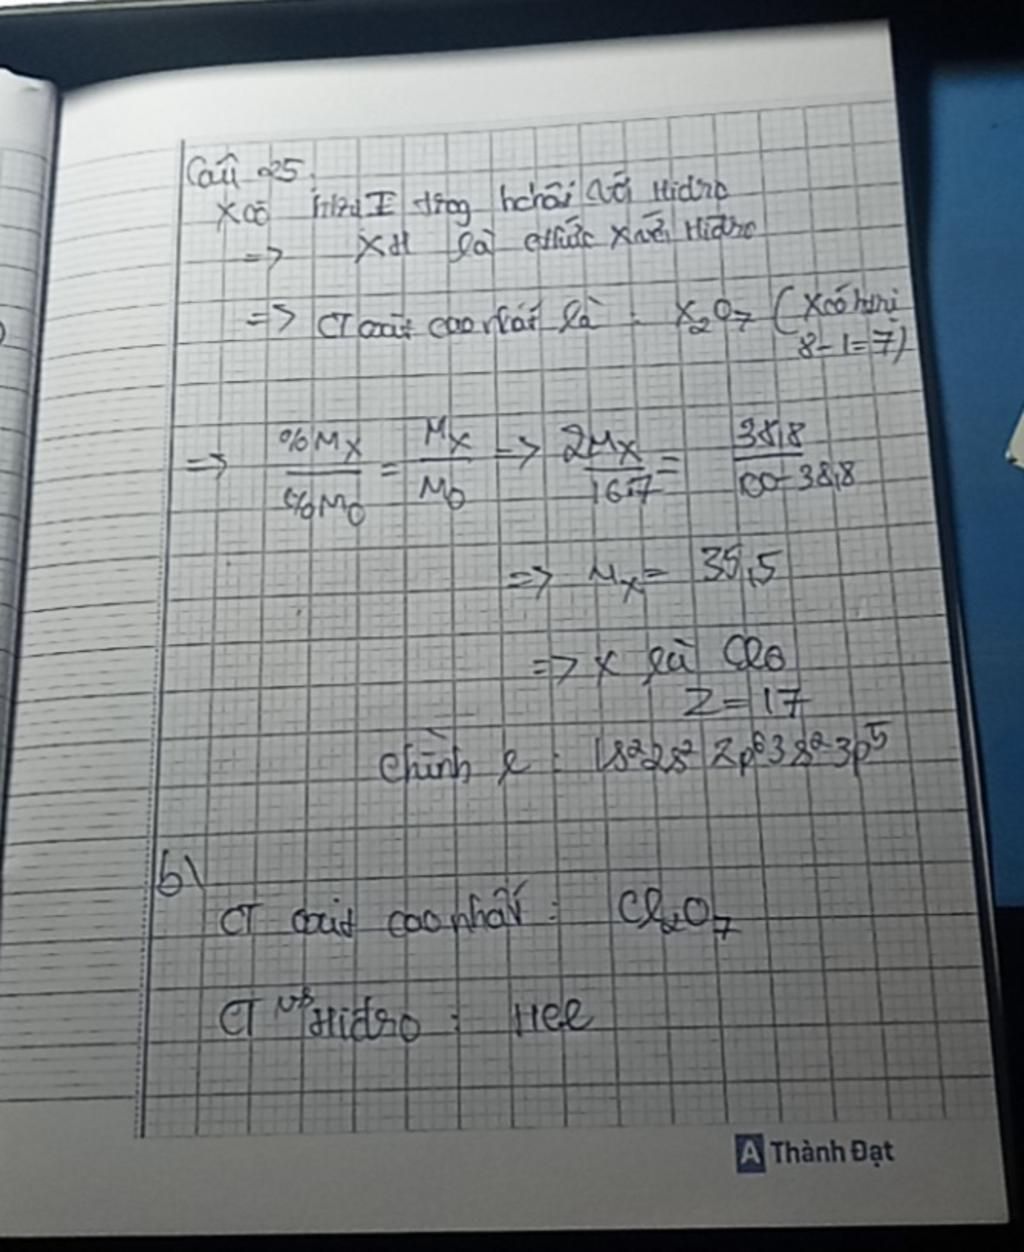 Câu 25.
X có htrị I trong hchất với Hidro
=> XH là cthức X với Hidro
=> CT oxit cao nhất là : X₂O₇ (X có htrị
8-1=7)
=> %MX/%MO = MX/MO => 2MX/16.7 = 38,8/100-38,8
=> MX = 35,5
=> X là Clo
Z=17
chình e : 1s²2s²2p⁶3s²3p⁵
b)
CT oxit cao nhất : Cl₂O₇
CT với Hidro : HCl
A Thành Đạt